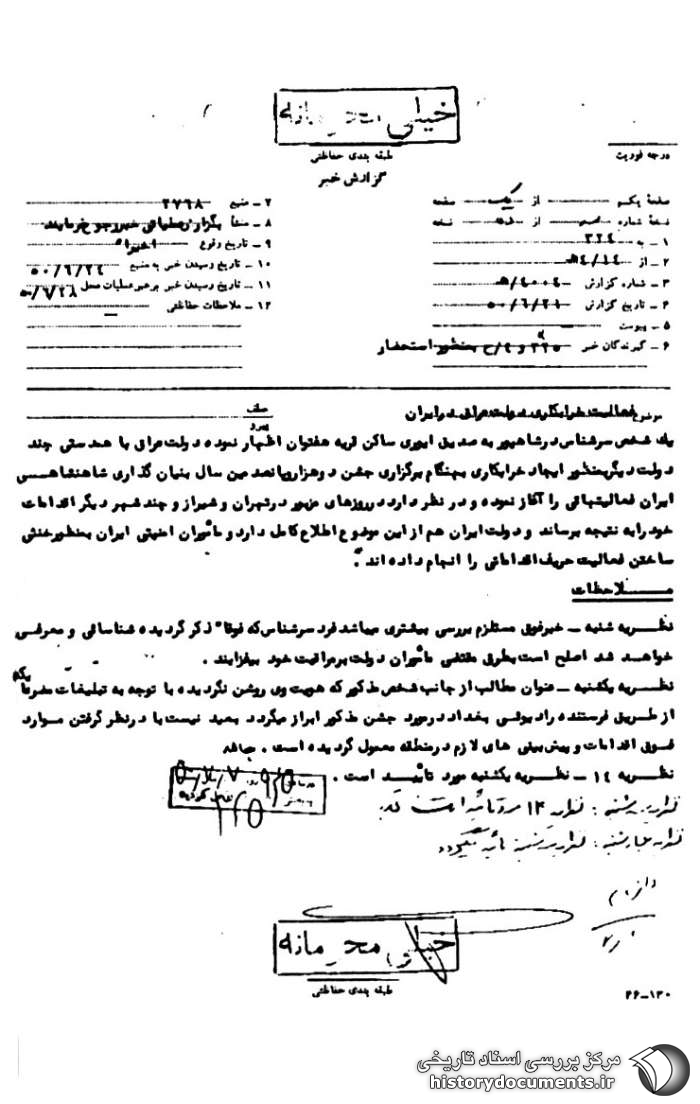 خیلی محرمانه
درجه فوریت
طبقه بندی حفاظتی
گزارش خبر
صفحه یکم از یک صفحه
نسخه شماره از نسخه
۱ – به ۳۲۴
۲ – از ۱۴/ﻫ۴
۳ – شماره گزارش ۴۰۰۴/ﻫ
۴ – تاریخ گزارش ۵۰/۶/۲۱
۵ – پیوست
۶ – گیرندگان خبر ۳۲۵ و ۴/ح بمنظور استحضار
۷ – منبع ۲۷۶۸
۸ – منشأ بگزارش عملیاتی خبر رجوع فرمایند
۹ – تاریخ وقوع اخیرا"
۱۰ – تاریخ رسیدن خبر به منبع ۵۰/۶/۲۴
۱۱ – تاریخ رسیدن خبر برهبر عملیات محل ۵۰/۷۲۸
۱۲ – ملاحظات حفاظتی –
موضوع فعالیت خرابکاری دولت عراق در ایران
عطف
پیرو
یک شخص سرشناس در شاهپور به صدیق ساکن قریه هفتوان اظهار نموده دولت عراق با همدستی چند
دولت دیگر بمنظور ایجاد خرابکاری بهنگام برگزاری جشن دوهزار و پانصدمین سال بنیان گذاری شاهنشاهی
ایران فعالیتهائی را آغاز نموده و در نظر دارد در روزهای مزبور در تهران و شیراز و چند شهر دیگر اقدامات
خود را به نتیجه برساند و دولت ایران هم از این موضوع اطلاع کامل دارد و مأموران امنیتی ایران بمنظور خنثی
ساختن فعالیت حریف اقداماتی را انجام داده اند .
ملاحظات
نظریه شنبه – خبر فوق مستلزم بررسی بیشتری میباشد فرد سرشناس که فوقا" ذکر گردیده شناسائی و معرفی
خواهد شد اصلح است بطرق مقتضی مأموران دولت بر مراقبت خود بیفزایند .
نظریه یکشنبه – عنوان مطالب از جانب شخص مذکور که هویت وی روشن نگردیده با توجه به تبلیغات مضره ایکه
از طریق فرستنده رادیوئی بغداد در مورد جشن مذکور ابراز میگردد بعید نیست با در نظر گرفتن موارد
فوق اقدامات و پیش بینی های لازم در منطقه معمول گردیده است .
نظریه ۱۴ – نظریه یکشنبه مورد تأیید است .
نظریه سه شنبه : نظریه ۱۴ مورد تأیید است
نظریه چهارشنبه : نظریه سه شنبه تأیید میگردد
خیلی محرمانه
طبقه بندی حفاظتی
۲۶–۱۳۰
مرکز بررسی اسناد تاریخی
historydocuments.ir